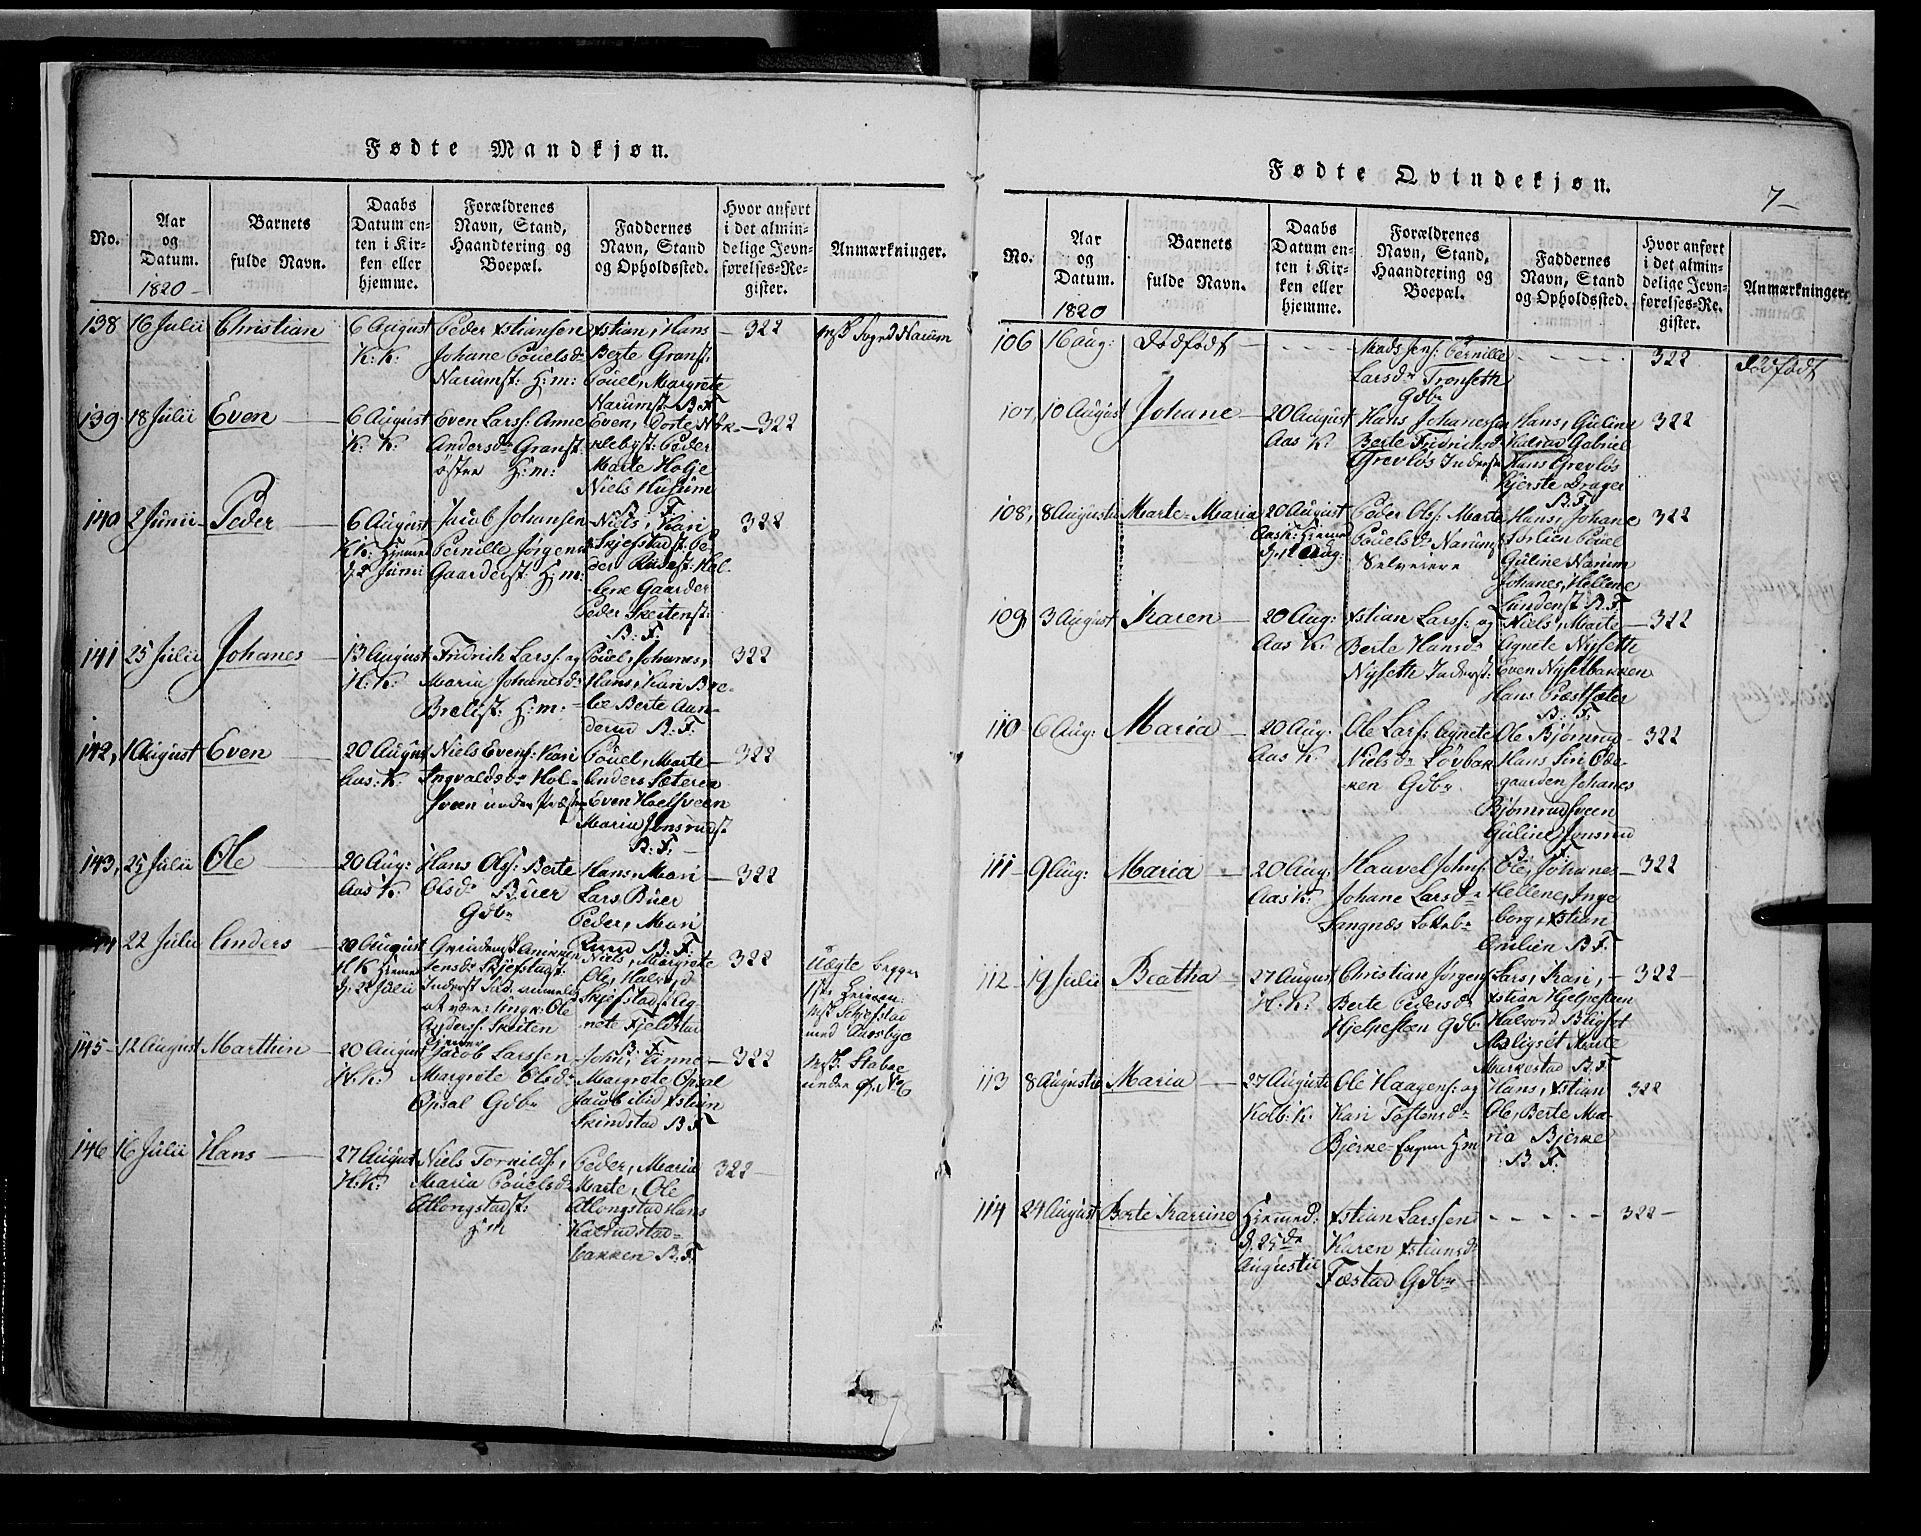 Fødte Mandkjøn.
No.
Aar
og
Datum.
1820
Barnets
fulde Navn.
Daabs
Datum en-
ten i Kir-
ken eller
hjemme.
Forældrenes
Navn, Stand,
Haandtering og
Boepæl.
Faddernes
Navn, Stand
og Opholdssted.
Hvor anført
i det almin-
delige Jevn-
førelses-Re-
gister.
Anmærkninger.
138 16 Julii Christian
6 August
K: K:
Peder Xstiansen
Johane Pouelsdr
Narumst: H:m:
Xstian, Hans
Berte Granst:
Pouel, Margrete
Narumst: B.F.
322
Sogned Narum
139 18 Julii Even
6 August
K: K:
Even Larss: Anne
Andersdr Granst
østre H:m:
Even, Dorte Nøk
klebyst: Peder
Marte Holje
Niels Husum
B. F.
322
140 2 Junii Peder
6 August
K K: Hjeme
d. 2 Juni
Jacob Johansen
Pernille Jørgens
Gaarderst: H:m:
Niels, Kari
Skjefstadst: Pe-
der Hel-
lene Gaarder
Peder Skeitenst:
B: F:
322
141 25 Julii Johanes
13 August
H: K:
Fridrich Larss: og
Maria Johanesdr
Brelist: H:m:
Pouel, Johanes,
Hans, Kari Bre-
lie Berte Aan-
derud B: F:
322
142, 1 August Even
20 August
Aas: K:
Niels Evens: Kari
Ingvaldsdr Hol-
sveen under Præste
Pouel, Marte
Anders Sæteren
Even Hoelsveen
Maria Jonsrudst
B: F:
322
143, 25 Julii Ole
20 Aug:
Aas K:
Hans Ols: Berte
Olsdr Büer
Gdbr
Hans, Mari
Lars Büer
Peder, Mari
Ruud B. F.
322
144 22 Julii Anders
20 August
H K Hjeme
d. 22 Julii
Jensdr Skjefstadst:
Inderst
at være: Ungk: Ole
Anderss: Skeiten
Niels, Margrete
Ole, Halvord
Skjefstad Ag-
nete Fjeldstad
B. F.
322
Uægte begge
Skjefstad
med
145 12 August Marthin
20 August
H. K:
Jacob Larssen
Margrete Olsdr
Opsal Gdbr
John, Anne
Margrete Opsal
Jacob ibid Xstian
Skindstad B F
322
Stabæe
under
146 16 Julii Hans
27 August
H: K:
Niels Torkilds:
Maria Pouelsdr
Atlongstadst:
H:m
Peder, Maria
Marte, Ole
Atlongstad Hans
Kalrudstad-
bakken B. F.
322
Fødte Qvindekjøn.
7
No.
Aar
og
Datum.
1820
Barnets
fulde Navn.
Daabs
Datum en-
ten i Kir-
ken eller
hjemme.
Forældrenes
Navn, Stand,
Haandtering og
Boepæl.
Faddernes
Navn, Stand
og Opholdssted.
Hvor anført
i det almin-
delige Jevn-
førelses-Re-
gister.
Anmærkninger.
106 16 aug: Dødfødt
Mads Jens: Pernille
Larsdr Tronseth
Gdbr
322
Dødfødt
107, 10 August Johane
20 August
Aas K:
Hans Johanessen
Berte Fridrichsdr
Grevløs Inderst
Hans, Guline
Kalrud Gabriel
Hans Grevløs
Kjerste Drager
B. F.
322
108, 8 Augusti Marte-Maria
20 August
Aas K: Hjeme
Aug:
Peder Ols: Marte
Pouelsdr Narum
Selveiere
Hans, Johane
Sørlien Pouel
Guline Narum
Johanes, Hellene
Lundenst B. F.
322
109 3 August Karen
20 Aug:
Aas K:
Xstian Larss: og
Berte Hansdr
Nyseth Inderst:
Niels, Marte
Agnete Nyseth
Even Nysetbakken
Hans Præstsæter
B. F.
322
110 6 Aug: Maria
20 Aug:
Aas K:
Ole Lars: Agnete
Nielsdr Løvbak-
ken Gdbr
Ole Bjørnrud
Hans Siri Øde-
gaarden Johanes
Bjørnrudsveen
Guline Jonsrud
B. F.
322
111 9 Aug: Maria
20 Aug:
Aas K:
Haavel Johns:
Johane Larsdr
Langnæs Løkebr
Ole, Johanes
Hellene, Inge-
borg, Xstian
B F.
322
112 19 Julii Beatha
27 August
H: K:
Christian Jørgens
Berte Pedersdr
Hjelpesteen Gdbr
Lars, Kari,
Xstian Hjelpesteen
Halvord Bligset
Bligset Marte
Murkestad B. F.
322
113 8 Augusti Maria
27 Augusti
Kolb: K:
Ole Haagens: og
Kari Toftensdr
Bjerke H:m
Hans, Xstian
Ole, Berte Ma-
ria Bjerke
B. F.
322
114 24 August Berte Karrine
Hjemed:
d. 25de
Augustii
Xstian Larssen
Karen Xstiansdr
Fæstad Gdbr
322